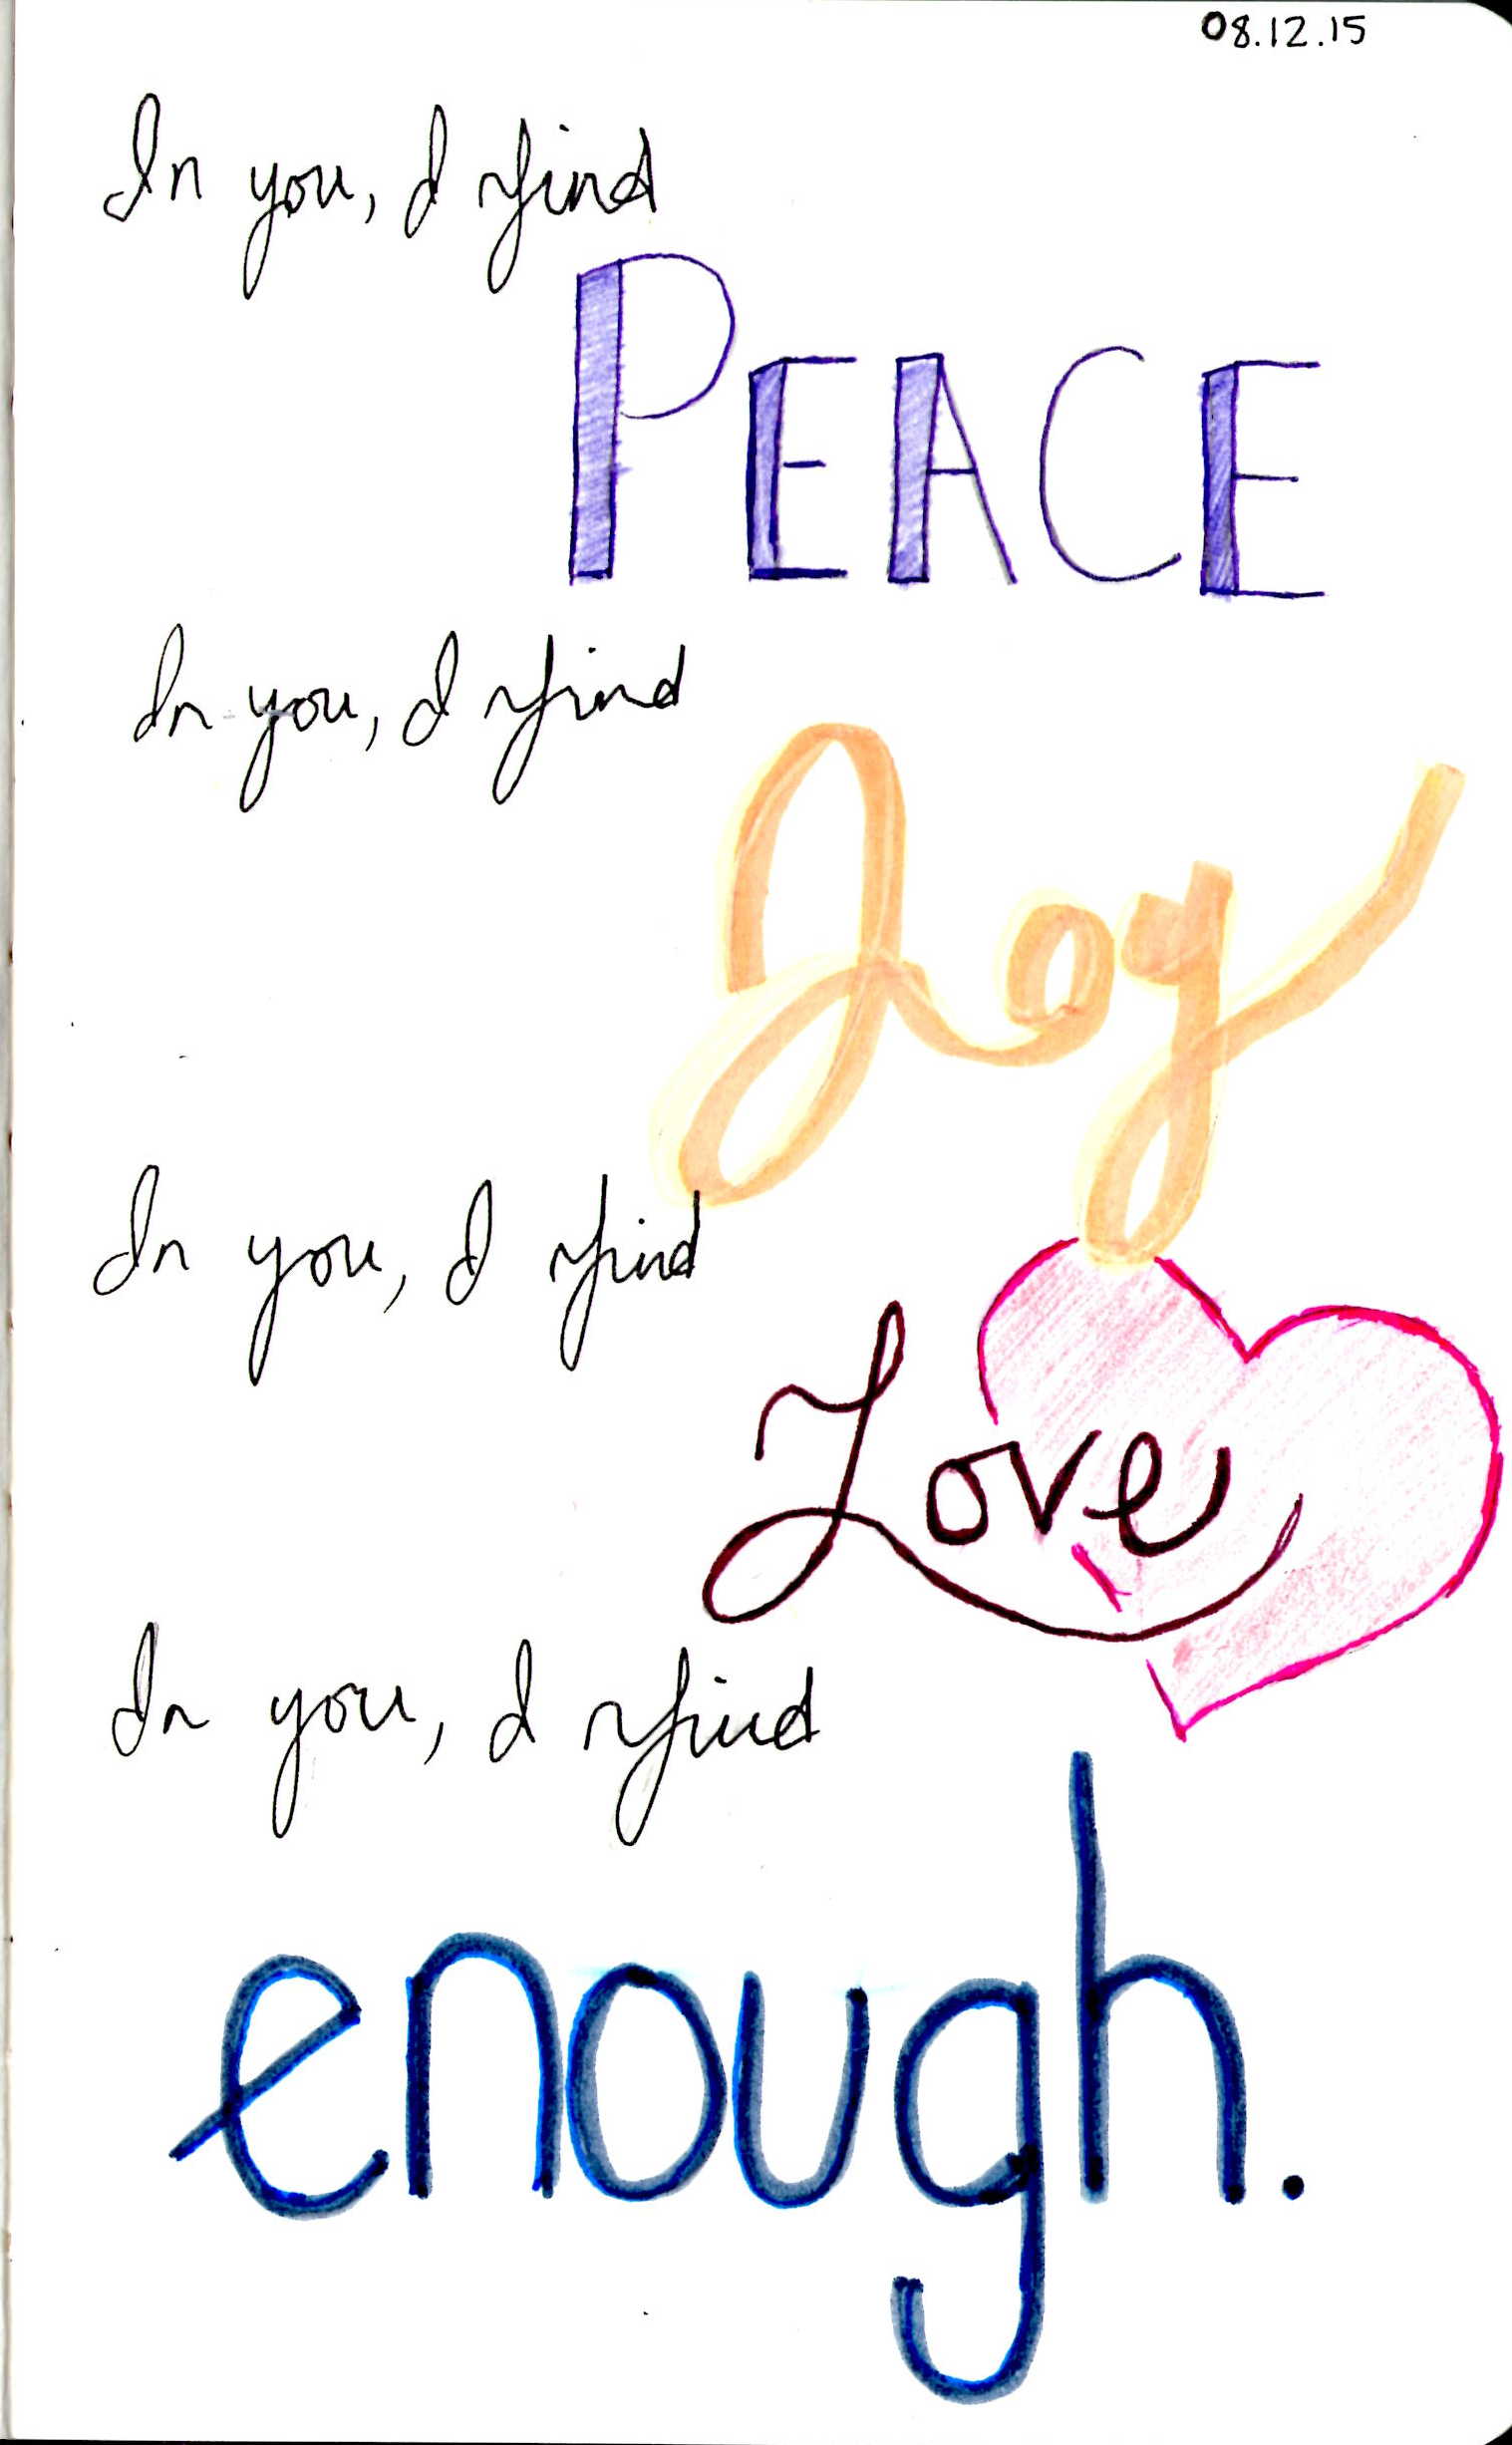 08.12.15
In you, I find
PEACE
In you, I find
Joy
In you, I find
Love
In you, I find
enough.